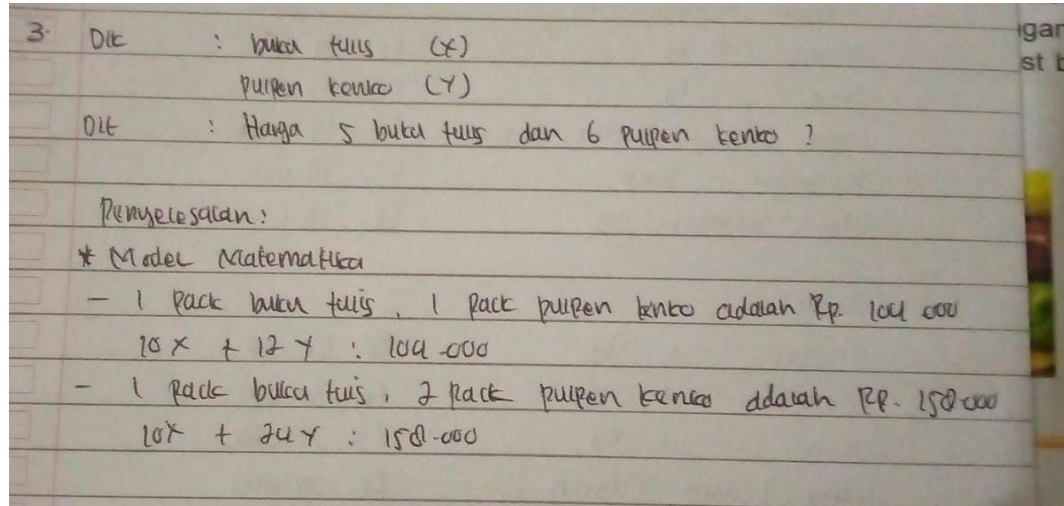 3. Dik : buku tulis (X)
pulpen kenko (Y)
Dit : Harga 5 buku tulis dan 6 pulpen kenko ?
Penyelesaian:
* Model Matematika
- 1 pack buku tulis, 1 pack pulpen kenko adalah Rp. 104 000
10 X + 12 Y : 104.000
- 1 pack buku tulis, 2 pack pulpen kenko adalah Rp. 158.000
10X + 24 Y : 158.000
gar
st b